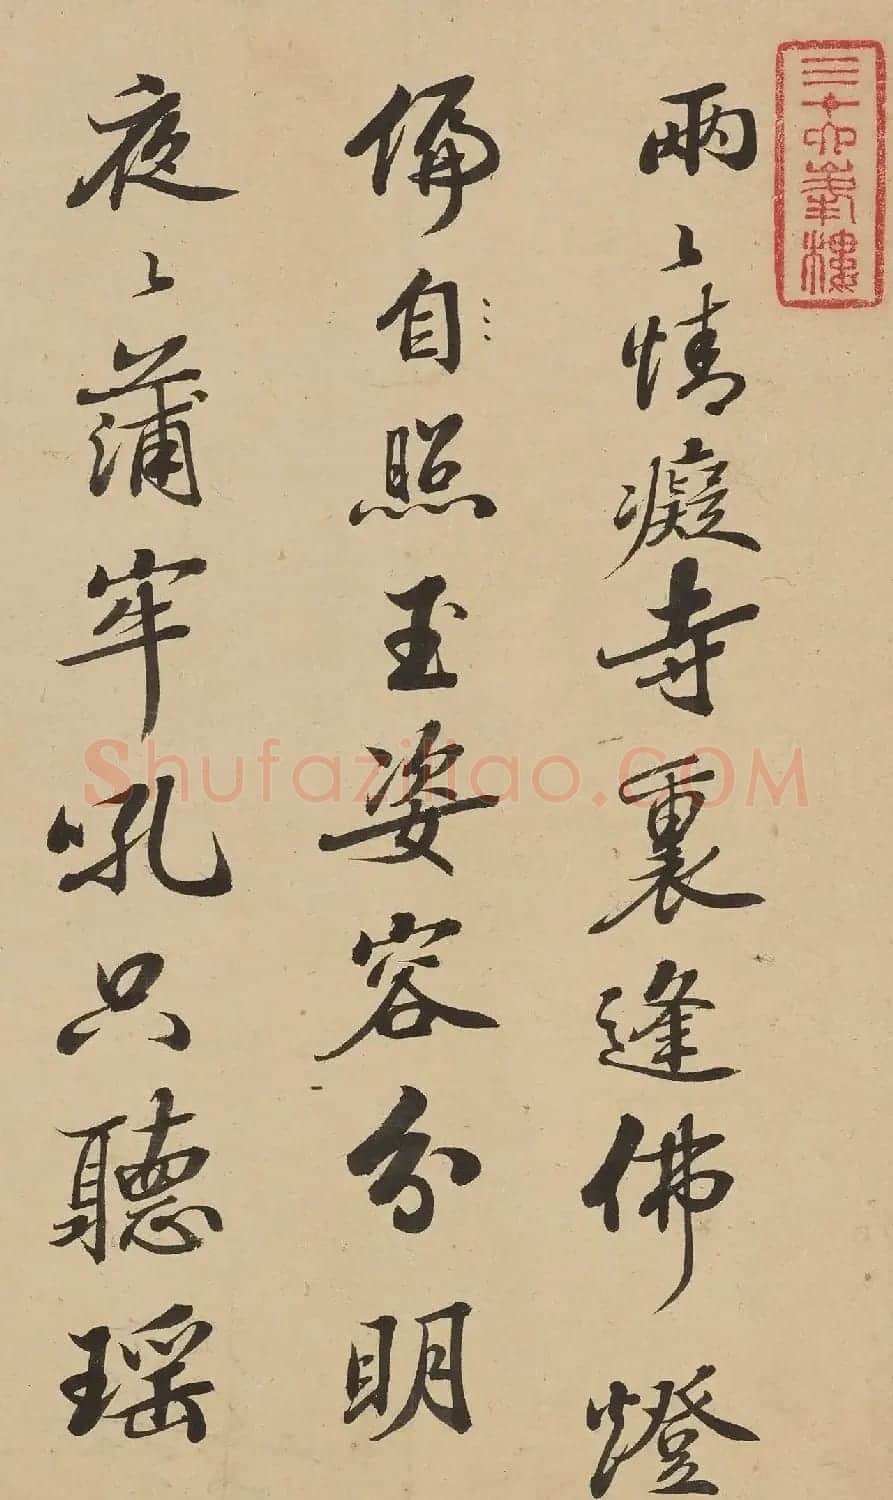 三十六峯樓
兩〻情癡寺裏逢佛燈
偏自照玉姿容分明
夜〻蒲牢吼只聽瑶
Shufaziliao.COM